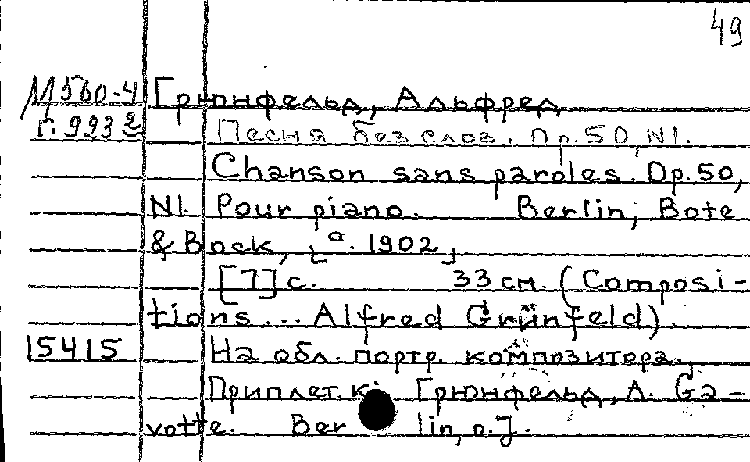 49
М560-4 Грюнфельд, Альфред
Г. 993 2 Песня без слов. Ор.50, N1.
Chanson sans paroles. Op.50,
N1. Pour piano. Berlin, Bote
& Bock, [c. 1902]
[7] с. 33 см. (Composi-
tions... Alfred Grünfeld).
15415 На обл. портр. композитора.
Приплет. к: Грюнфельд, А. Ga-
votte. Berlin, o. J.